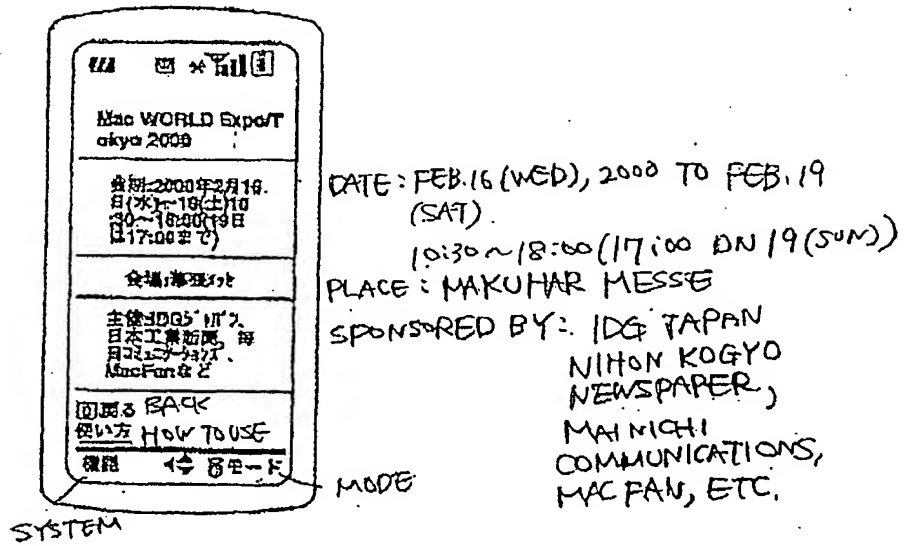 Mac WORLD Expo/T
okyo 2000
会期:2000年2月16
日(水)~19(土)10
:30~18:00(19日
は17:00まで)
会場:幕張メッセ
日本工業新聞、毎
日コミュニケーションズ、
MacFanなど
戻る BACK
使い方 HOW TO USE
モード
DATE: FEB.16 (WED), 2000 TO FEB. 19
(SAT).
10:30~18:00 (17:00 ON 19 (SUN))
PLACE: MAKUHAR MESSE
SPONSORED BY: IDG TAPAN
NIHON KOGYO
NEWSPAPER,
MAINICHI
COMMUNICATIONS,
MAC FAN, ETC.
MODE
SYSTEM